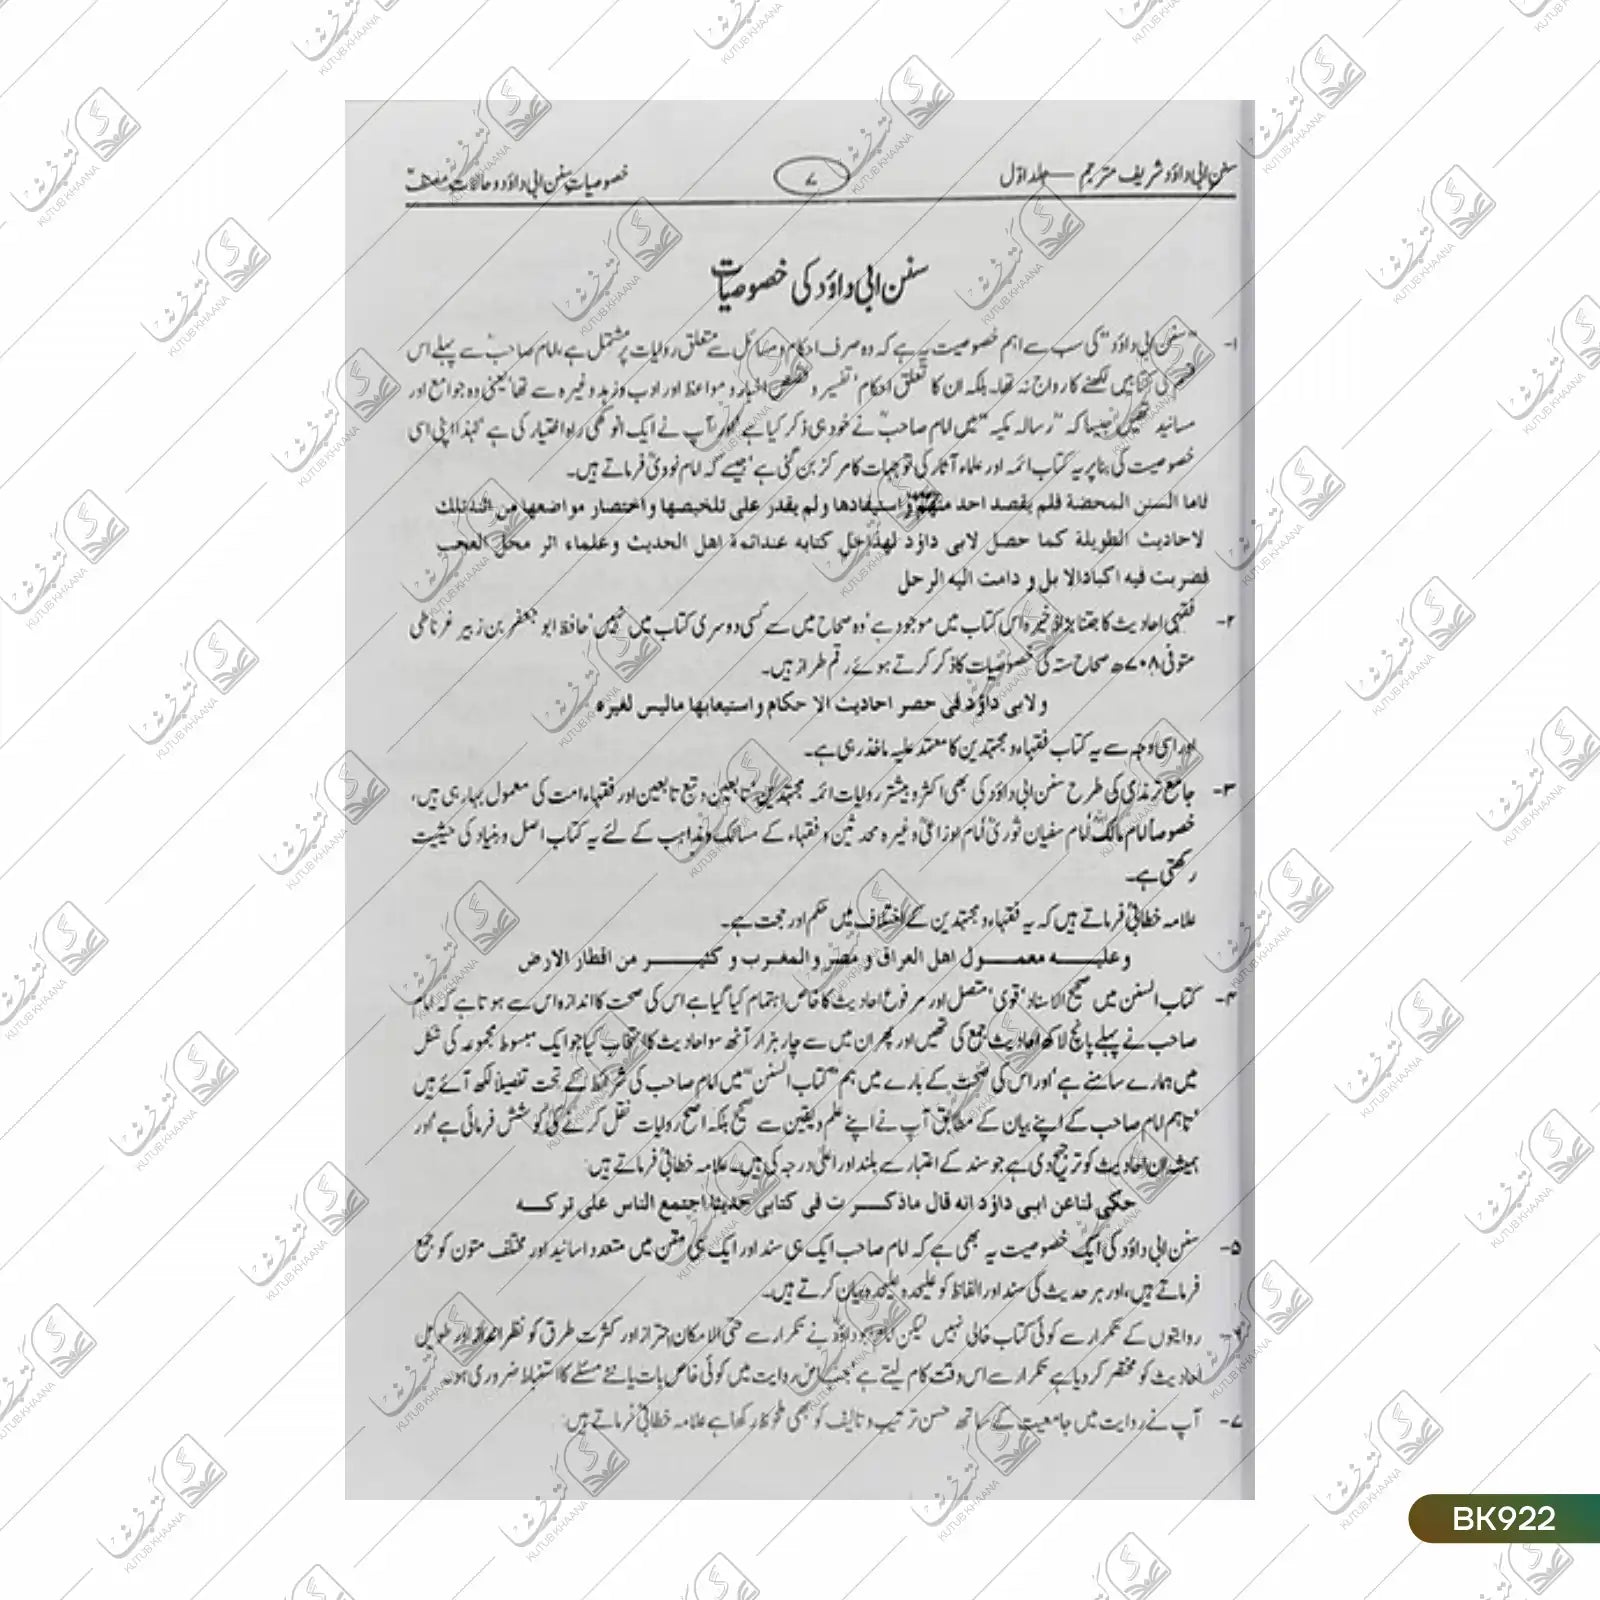 سنن ابی داؤد شریف مترجم — جلد اوّل
۷
خصوصیات سنن ابی داؤد و حالات مصنف
سنن ابی داؤد کی خصوصیات
۱- "سنن ابی داؤد" کی سب سے اہم خصوصیت یہ ہے کہ وہ صرف احکام و مسائل سے متعلق روایات پر مشتمل ہے، امام صاحبؒ سے پہلے اس
قسم کی کتابیں لکھنے کا رواج نہ تھا۔ بلکہ ان کا تعلق احکام' تفسیر و قصص' اخبار و مواعظ اور ادب و زہد وغیرہ سے تھا' یعنی وہ جوامع اور
مسانید تھیں جیسا کہ "رسالہ مکیہ" میں امام صاحبؒ نے خود ہی ذکر کیا ہے اور آپ نے ایک انوکھی راہ اختیار کی ہے' لہٰذا اپنی اسی
خصوصیت کی بنا پر یہ کتاب ائمہ اور علماء آثار کی توجہات کا مرکز بن گئی ہے' جیسے کہ امام نوویؒ فرماتے ہیں۔
فاما السنن المحضة فلم يقصد احد منهم و استيفادها ولم يقدر على تلخيصها و اختصار مواضعها من اثنذتلك
لاحاديث الطويلة كما حصل لابى داؤد لهذا حل كتابه عندائمة اهل الحديث و علماء اثر محل العجب
فضربت فيه اكبادالا بل و دامت اليه الرحل
۲- فقہی احادیث کا جتنا بڑا ذخیرہ اس کتاب میں موجود ہے' وہ صحاح میں سے کسی دوسری کتاب میں نہیں' حافظ ابو جعفر بن زبیر غرناطی
متوفی ۷۰۸ھ صحاح ستہ کی خصوصیات کا ذکر کرتے ہوئے رقم طراز ہیں۔
ولابى داؤد فى حصر احاديث الا حكام و استيعابها ماليس لغيره
اور اسی وجہ سے یہ کتاب فقہاء و مجتہدین کا معتمد علیہ ماخذ رہی ہے۔
۳- جامع ترمذی کی طرح سنن ابی داؤد کی بھی اکثر و بیشتر روایات ائمہ مجتہدین' تابعین و تبع تابعین اور فقہاء امت کی معمول بہا رہی ہیں،
خصوصاً امام مالکؒ' امام سفیان ثوریؒ' امام اوزاعیؒ وغیرہ محدثین و فقہاء کے مسالک و مذاہب کے لئے یہ کتاب اصل و بنیاد کی حیثیت
رکھتی ہے۔
علامہ خطابیؒ فرماتے ہیں کہ یہ فقہاء و مجتہدین کے اختلاف میں حکم اور حجت ہے۔
و عليه معمول اهل العراق و مصر والمغرب و كثير من اقطار الارض
۴- کتاب السنن میں صحیح الاسناد' قوی' متصل اور مرفوع احادیث کا خاص اہتمام کیا گیا ہے اس کی صحت کا اندازہ اس سے ہوتا ہے کہ امام
صاحب نے پہلے پانچ لاکھ احادیث جمع کی تھیں اور پھر ان میں سے چار ہزار آٹھ سو احادیث کا انتخاب کیا جو ایک مبسوط مجموعہ کی شکل
میں ہمارے سامنے ہے' اور اس کی صحت کے بارے میں ہم "کتاب السنن" میں امام صاحب کی شرائط کے تحت تفصیلاً لکھ آئے ہیں
تاہم امام صاحب کے اپنے بیان کے مطابق آپ نے اپنے علم و یقین سے صحیح بلکہ اصح روایات نقل کرنے کی کوشش فرمائی ہے' اور
ہمیشہ ان احادیث کو ترجیح دی ہے جو سند کے اعتبار سے بلند اور اعلیٰ درجہ کی ہیں۔ علامہ خطابیؒ فرماتے ہیں:
حكى لناعن ابى داؤد انه قال ماذكرت فى كتابى حديثا اجتمع الناس على تركه
۵- سنن ابی داؤد کی ایک خصوصیت یہ بھی ہے کہ امام صاحب ایک ہی سند اور ایک ہی متن میں متعدد اسانید اور مختلف متون کو جمع
فرماتے ہیں، اور ہر حدیث کی سند اور الفاظ کو علیحدہ علیحدہ بیان کرتے ہیں۔
۶- روایتوں کے تکرار سے کوئی کتاب خالی نہیں لیکن امام ابوداؤدؒ نے تکرار سے حتی الامکان احتراز اور کثرت طرق کو نظر انداز اور طویل
احادیث کو مختصر کر دیا ہے تکرار سے اس وقت کام لیتے ہے جب اس روایت میں کوئی خاص بات یا نئے مسئلے کا استنباط ضروری ہو۔
۷- آپ نے روایت میں جامعیت کے ساتھ حسن ترتیب و تالیف کو بھی ملحوظ رکھا ہے علامہ خطابیؒ فرماتے ہیں:
BK922